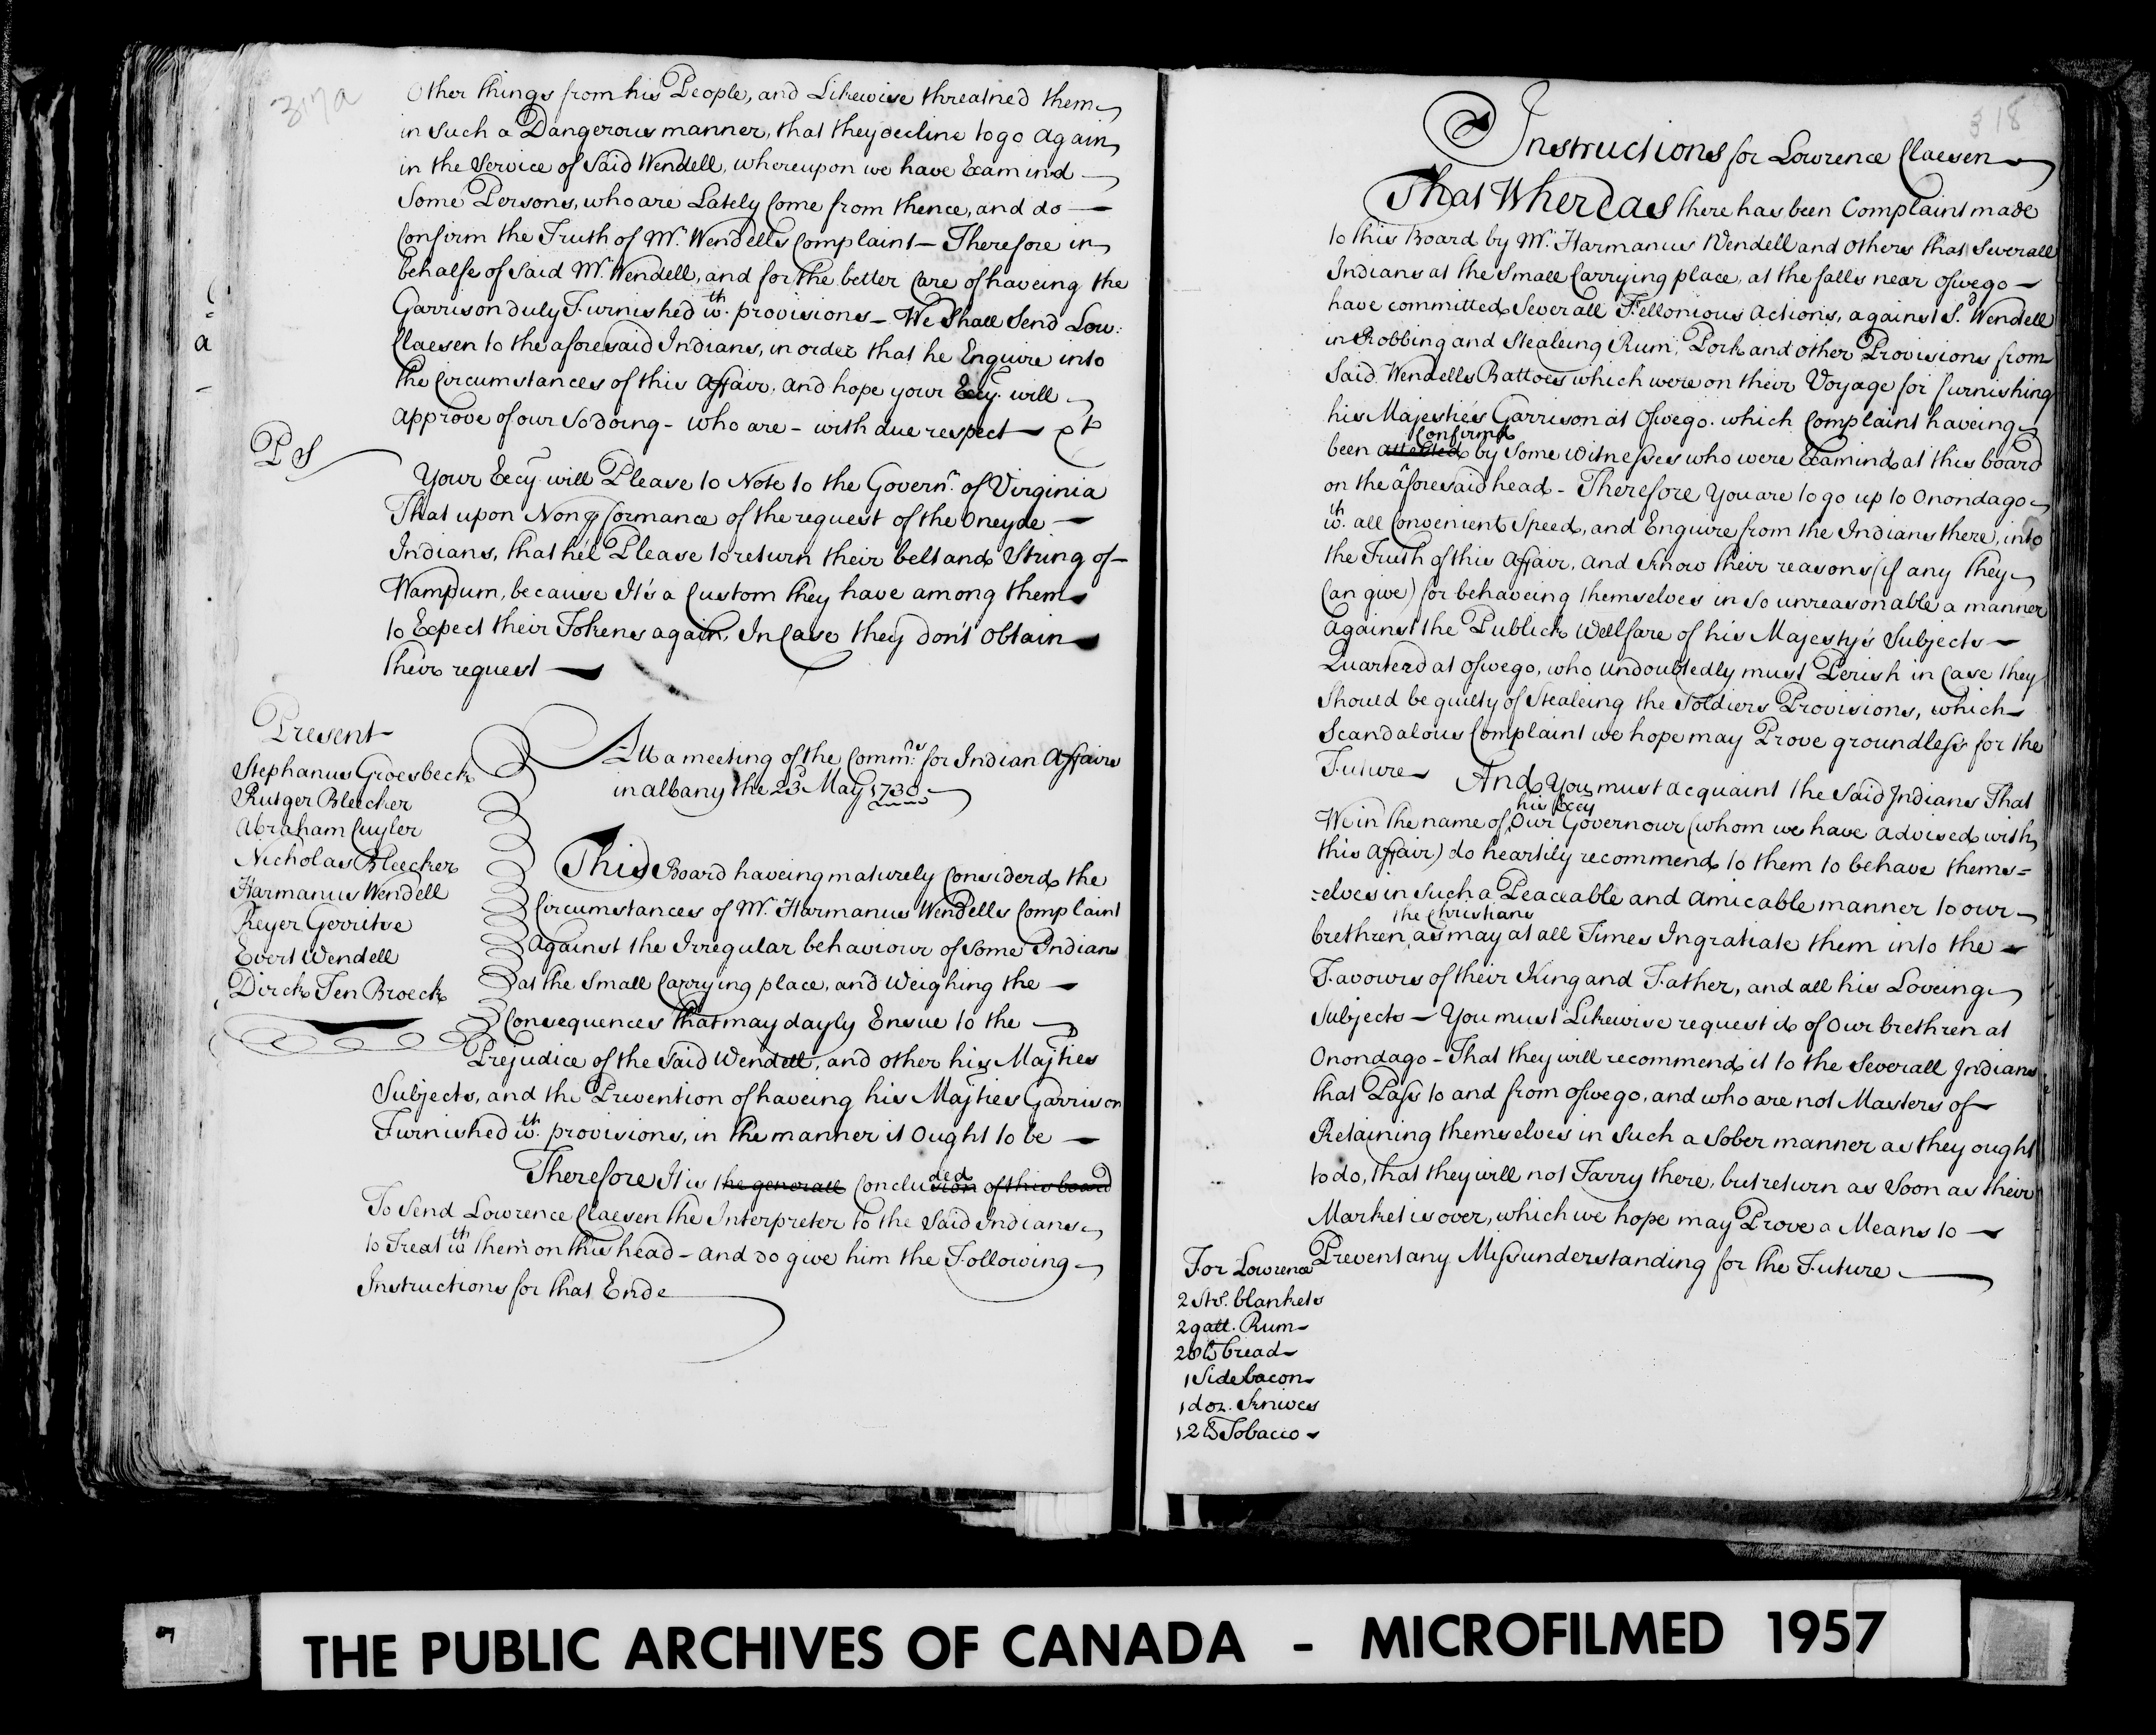 317a
Other things from his People, and Likewise threatned them
in Such a Dangerous manner, that they decline to go Again
in the Service of Said Wendell, whereupon we have Examind
Some Persons, who are Lately Come from thence, and do
Confirm the Truth of Mr. Wendells Complaint - Therefore in
behalfe of Said Mr. Wendell, and for the better Care of haveing the
Garrison duly Furnished wth. provisions - We Shall Send Low:
Claesen to the aforesaid Indians, in order that he Enquire into
the Circumstances of this Affair, And hope your Excy. will
Approve of our So doing - who are - with due respect
PS
Your Excy. will Please to Note to the Governr. of Virginia
That upon Non pformance of the request of the Oneyde
Indians, that he'l Please to return their belt and String of
Wampum, because It's a Custom they have among them
to Expect their Tokens again, In Case they don't Obtain
their request
Present
Stephanus Groesbeck
Rutger Bleecker
Abraham Cuyler
Nicholas Bleecker
Harmanus Wendell
Reyer Gerritse
Evert Wendell
Dirck Ten Broeck
Att a meeting of the Commrs. for Indian Affairs
in albany the 23d May 1730
This Board haveing maturely Considerd the
Circumstances of Mr. Harmanus Wendells Complaint
Against the Irregular behaviour of Some Indians
at the Small Carrying place, and Weighing the
Consequences that may dayly Ensue to the
Prejudice of the Said Wendell, and other his Majties
Subjects, and the Prevention of haveing his Majties Garrison
Furnished wth. provisions, in the manner it Ought to be
Therefore It is the generall Conclusion ded of this board
To Send Lowrence Claesen the Interpreter to the Said Indians
to Treat wth them on this head - and do give him the Following
Instructions for that Ende
318
Instructions for Lowrence Claesen
That Whereas there has been Complaint made
to this Board by Mr. Harmanus Wendell and others that Severall
Indians at the Small Carrying place, at the falls near Oswego
have committed Severall Fellonious Actions, against Sd. Wendell
in Robbing and Stealeing Rum, Pork and other Provisions from
Said Wendells Battoes which were on their Voyage for furnishing
his Majesties Garrison at Oswego. which Complaint haveing
Confirmd
been attested by Some Witnesses who were Examind at this board
on the aforesaid head - Therefore You are to go up to Onondago
wth. all Convenient Speed, and Enquire from the Indians there, into
the Truth of this Affair, And Know their reasons (if any they
Can give) for behaveing themselves in So unreasonable a manner
Against the Publick Wellfare of his Majesty's Subjects
Quarterd at Oswego, who Undoubtedly must Perish in Case they
Should be guilty of Stealeing the Soldiers Provisions, which
Scandalous Complaint we hope may Prove groundless for the
Future And You must acquaint the Said Indians That
his Excy
We in the name of Our Governour (whom we have advised with
this Affair) do heartily recommend to them to behave thems=
=elves in Such a Peaceable and Amicable manner to our
the Christians
brethren, as may at all Times Ingratiate them into the
Favours of their King and Father, and all his Loveing
Subjects - You must Likewise request do of Our brethren at
Onondago - That they will recommend it to the Severall Indians
that Pass to and from Oswego, and who are not Masters of
Retaining themselves in Such a Sober manner as they ought
to do, that they will not Tarry there, but return as Soon as their
Market is over, which we hope may Prove a Means to
Prevent any Missunderstanding for the Future
For Lowrence
2 Strd. blankets
2 gall. Rum
28 lb bread
1 Side bacon
1 doz. Knives
12 lb Tobacco
THE PUBLIC ARCHIVES OF CANADA - MICROFILMED 1957